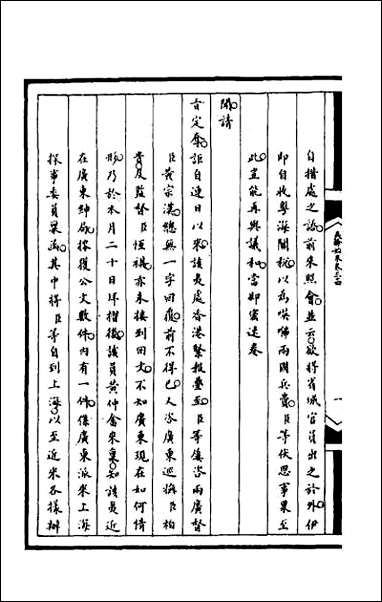 自措處之語前來照會並云欲將省城官員出之於外伊
即自收粵海關稅以為𠸄咈兩國兵費臣等伏思事果至
此豈能再與議和當即密速奏
聞請
旨定奪詎自連日以來該夷處香港緊報疊至臣等屢咨兩廣督
臣黃宗漢總無一字回復前不得已咨廣東巡撫臣柏
貴及監督臣恆祺亦未接到回文不知廣東現在如何情
形乃於本月二十日據該員黃仲畬來稟知該夷近
在廣東紳局搜獲公文數件內有一件係廣東派來上海
探事委員稟函其中將臣等自到上海以至近來各樣辦
籌辦夷務始末卷三十四
一